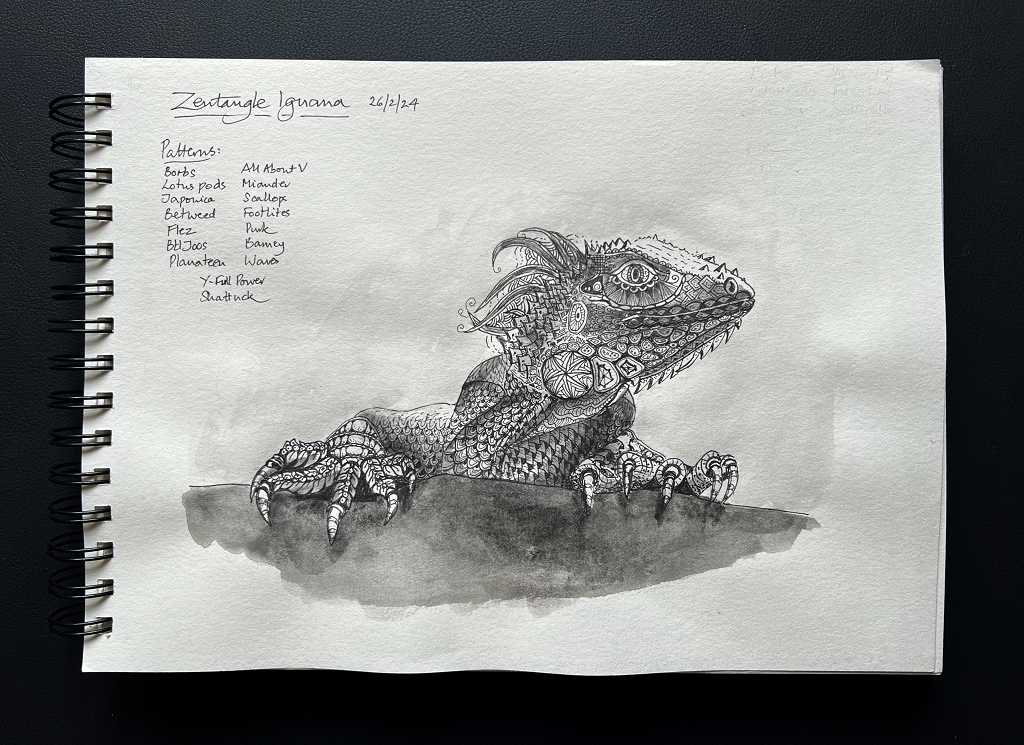 Zentangle Iguana 26/2/24
Patterns:
Borbs All About V
Lotus pods Miander
Japonica Scallops
Betweed Footlites
Flez Punk
BblJoos Barney
Planateen Waves
Y-Full Power
Shattuck